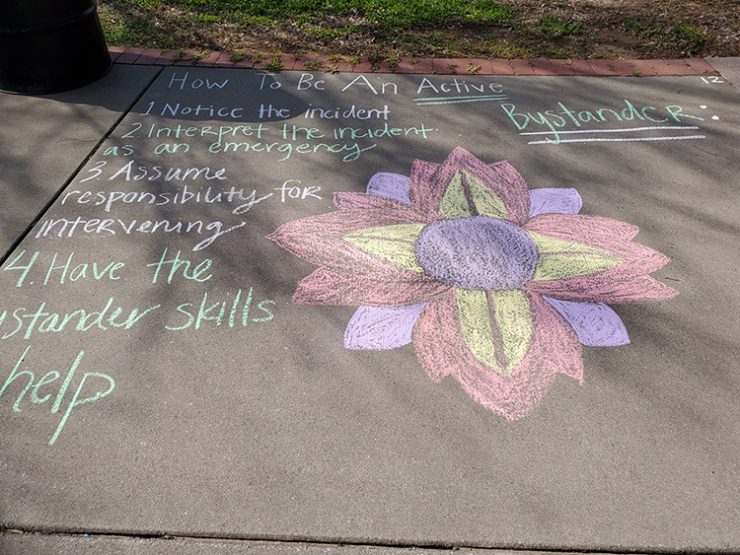 How To Be An Active Bystander:
1 Notice the incident
2 Interpret the incident
as an emergency
3 Assume
responsibility for
intervening
4. Have the
stander skills
help
12